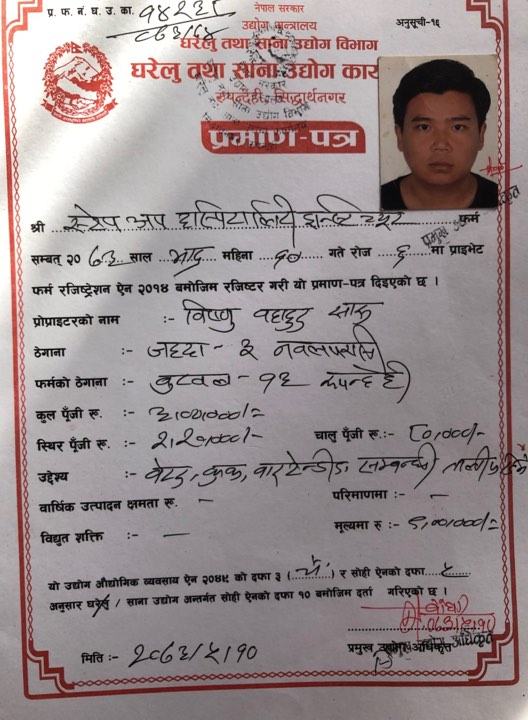 प्र. फ. नं. घ. उ. का. १४२३८
०६३/६४
नेपाल सरकार
उद्योग मन्त्रालय
अनुसूची-१६
घरेलु तथा साना उद्योग विभाग
घरेलु तथा साना उद्योग कार्
रुपन्देही, सिद्धार्थनगर
प्रमाण-पत्र
श्री स्टेप अप हस्पिटालिटी इन्स्टिच्यूट फर्म
सम्बत् २० ६३ साल भाद्र महिना १० गते रोज ६ मा प्राइभेट
फर्म रजिष्ट्रेशन ऐन २०१४ बमोजिम रजिष्टर गरी यो प्रमाण-पत्र दिइएको छ ।
प्रोप्राइटरको नाम :- विष्णु बहादुर सारु
ठेगाना :- जहदा - ३ नवलपरासी
फर्मको ठेगाना :- बुटवल - १३ रुपन्देही
कुल पूँजी रू. :- ३,००,०००/=
स्थिर पूँजी रू. :- २,२०,०००/- चालु पूँजी रू.:- ८०,०००/-
उद्देश्य :- वेटर, कुक, बारटेन्डीङ सम्बन्धी तालीम दिने
वार्षिक उत्पादन क्षमता रू. - परिमाणमा :- -
विद्युत शक्ति :- - मूल्यमा रु :- ६,००,०००/=
यो उद्योग औद्योगिक व्यवसाय ऐन २०४९ को दफा ३ ( ) र सोही ऐनको दफा ९
अनुसार घरेलु / साना उद्योग अन्तर्गत सोही ऐनको दफा १० बमोजिम दर्ता गरिएको छ ।
०६३/५/१०
मिति :- २०६३/५/१०
प्रमुख उद्योग अधिकृत